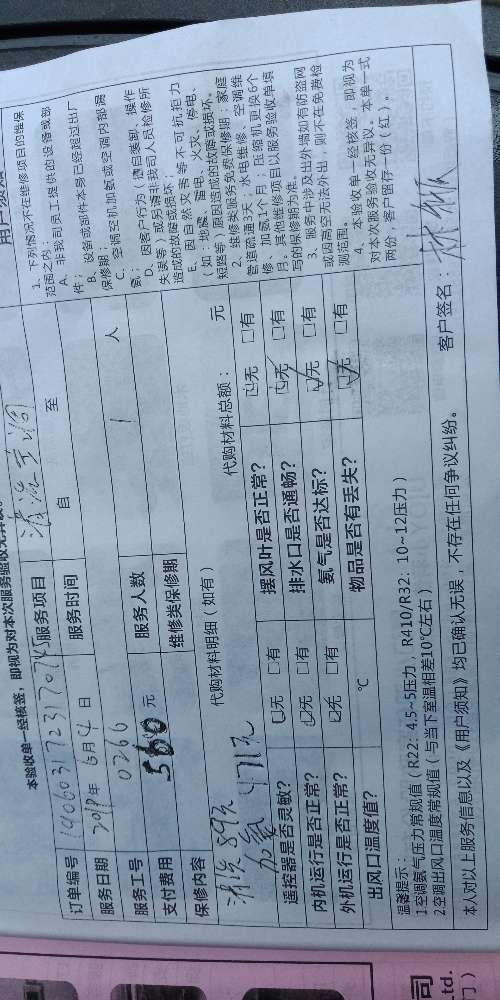 本验收单一经核签，即视为对本次服务验收无异议。
订单编号 1406031723170745 服务项目 清洗空调
服务日期 2019年 6月 4日 服务时间 自 至
服务工号 0266 服务人数 1 人
支付费用 560 元 维修类保修期
保修内容
代购材料明细（如有） 代购材料总额： 元
清洗 89元
加氨 471元
遥控器是否灵敏？ 无 有 摆风叶是否正常？ 无 有
内机运行是否正常？ 无 有 排水口是否通畅？ 无 有
外机运行是否正常？ 无 有 氨气是否达标？ 无 有
出风口温度值？ ℃ 物品是否有丢失？ 无 有
用户须知
1、下列情况不在维修项目的维保
范围之内：
A、非我司员工提供的设备或部
件；
B、设备或部件本身已经超过出厂
保修期；
C、空调空机加氨或空调内部漏
氨；
D、因客户行为（擅自装卸、操作
失误等）或另请非我司人员检修所
造成的故障或损坏；
E、因自然灾害等不可抗拒力
（如：地震、雷电、火灾、停电、
短路等）原因造成的故障或损坏。
2、维修类服务免费保修期：家庭
管道疏通3天；水电维修、空调维
修、加氨1个月；压缩机更换6个
月。其他维修项目以服务验收单填
写的保修期为准。
3、服务中涉及出外墙如有防盗网
或因高空无法外出，则不在免费检
测范围。
4、本验收单一经核签，即视为
对本次服务验收无异议。本单一式
两份，客户留存一份（红）。
温馨提示：
1空调氨气压力常规值（R22：4.5~5压力，R410/R32：10~12压力）
2空调出风口温度常规值（与当下室温相差10℃左右）
本人对以上服务信息以及《用户须知》均已确认无误，不存在任何争议纠纷。 客户签名：
司
td.
门）